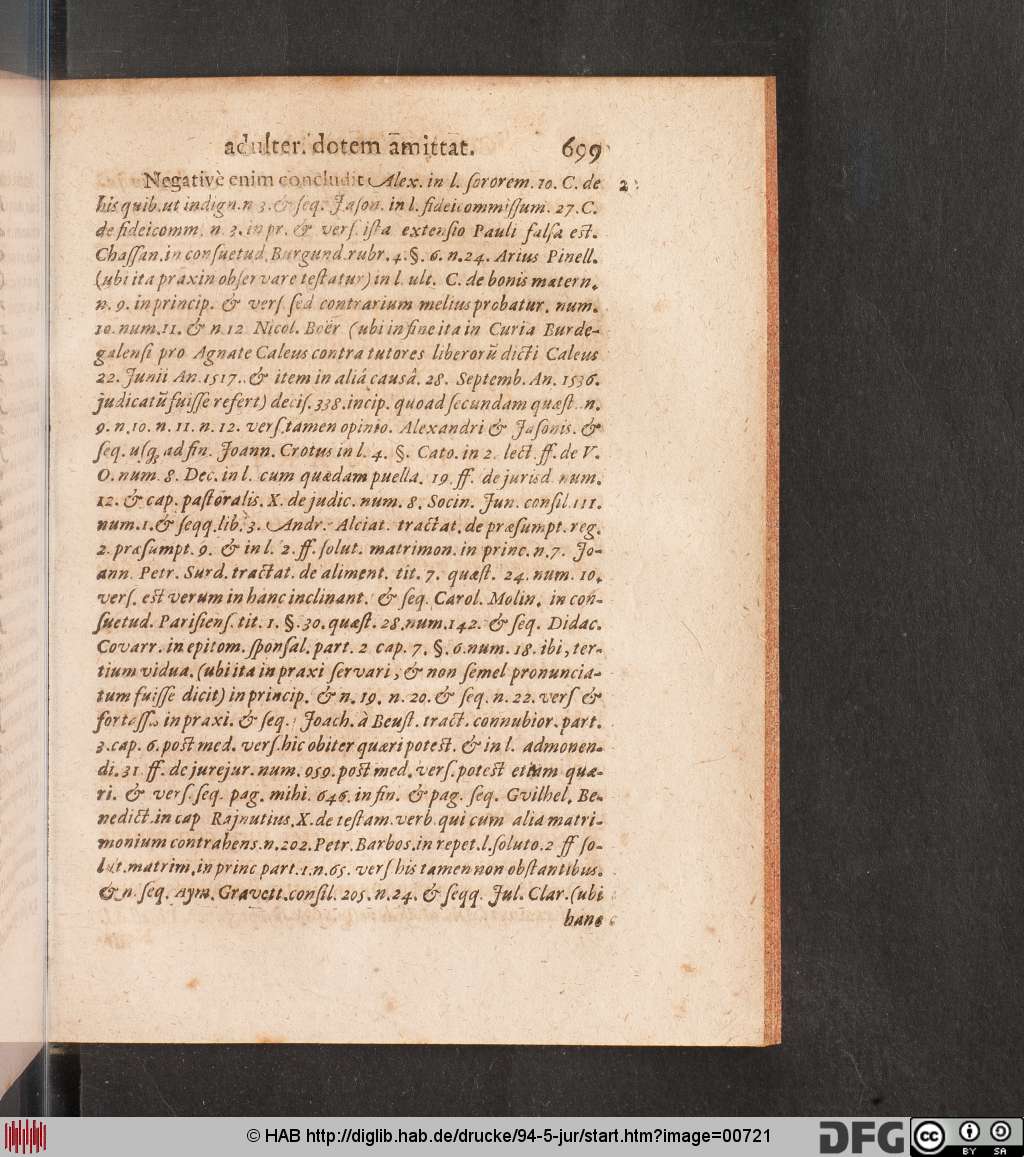 adulter. dotem am̄ittat. 699
Negativè enim concludit Alex. in l. ſororem. 10. C. de 2
his quib. ut indign. n 3. & ſeq. Jaſon. in l. fideicommiſſum. 27. C.
de fideicomm. n. 3. in pr. & verſ. iſta extenſio Pauli falſa eſt.
Chaſſan. in conſuetud. Burgund. rubr. 4. §. 6. n. 24. Arius Pinell.
(ubi ita praxin obſervare teſtatur) in l. ult. C. de bonis matern.
n. 9. in princip. & verſ. ſed contrarium melius probatur. num.
10. num. 11. & n. 12 Nicol. Boër (ubi in fine ita in Curia Burde-
galenſi pro Agnate Caleus contra tutores liberorũ dicti Caleus
22. Junii An. 1517. & item in aliâ causâ. 28. Septemb. An. 1536.
judicatũ fuiſſe refert) deciſ. 338. incip. quoad ſecundam quæſt. n.
9. n. 10. n. 11. n. 12. verſ. tamen opinio. Alexandri & Jaſonis. &
ſeq. uſq; ad fin. Joann. Crotus in l. 4. §. Cato. in 2. lect. ff. de V.
O. num. 8. Dec. in l. cum quædam puella. 19. ff. de jurisd. num.
12. & cap. paſtoralis. X. de judic. num. 8. Socin. Jun. conſil. 111.
num. 1. & ſeqq. lib. 3. Andr. Alciat. tractat. de præſumpt. reg.
2. præſumpt. 9. & in l. 2. ff. ſolut. matrimon. in princ. n. 7. Jo-
ann. Petr. Surd. tractat. de aliment. tit. 7. quæſt. 24. num. 10.
verſ. eſt verum in hanc inclinant. & ſeq. Carol. Molin. in con-
ſuetud. Pariſienſ. tit. 1. §. 30. quæſt. 28. num. 142. & ſeq. Didac.
Covarr. in epitom. ſponſal. part. 2 cap. 7. §. 6. num. 18. ibi, ter-
tium vidua. (ubi ita in praxi ſervari, & non ſemel pronuncia-
tum fuiſſe dicit) in princip. & n. 19. n. 20. & ſeq. n. 22. verſ &
fortaſſis in praxi. & ſeq. Joach. à Beuſt. tract. connubior. part.
3. cap. 6. poſt med. verſ. hic obiter quæri poteſt. & in l. admonen-
di. 31. ff. de jurejur. num. 959. poſt med. verſ. poteſt etiam quæ-
ri. & verſ. ſeq. pag. mihi. 646. in fin. & pag. ſeq. Gvilhel. Be-
nedict. in cap Rajnutius. X. de teſtam. verb. qui cum alia matri-
monium contrahens. n. 202. Petr. Barbos. in repet. l. ſoluto. 2 ff ſo-
lut. matrim. in princ part. 1. n. 65. verſ his tamen non obſtantibus.
& n. ſeq. Aym. Gravett. conſil. 205. n. 24. & ſeqq. Jul. Clar. (ubi
hanc
© HAB http://diglib.hab.de/drucke/94-5-jur/start.htm?image=00721
DFG
cc
BY SA